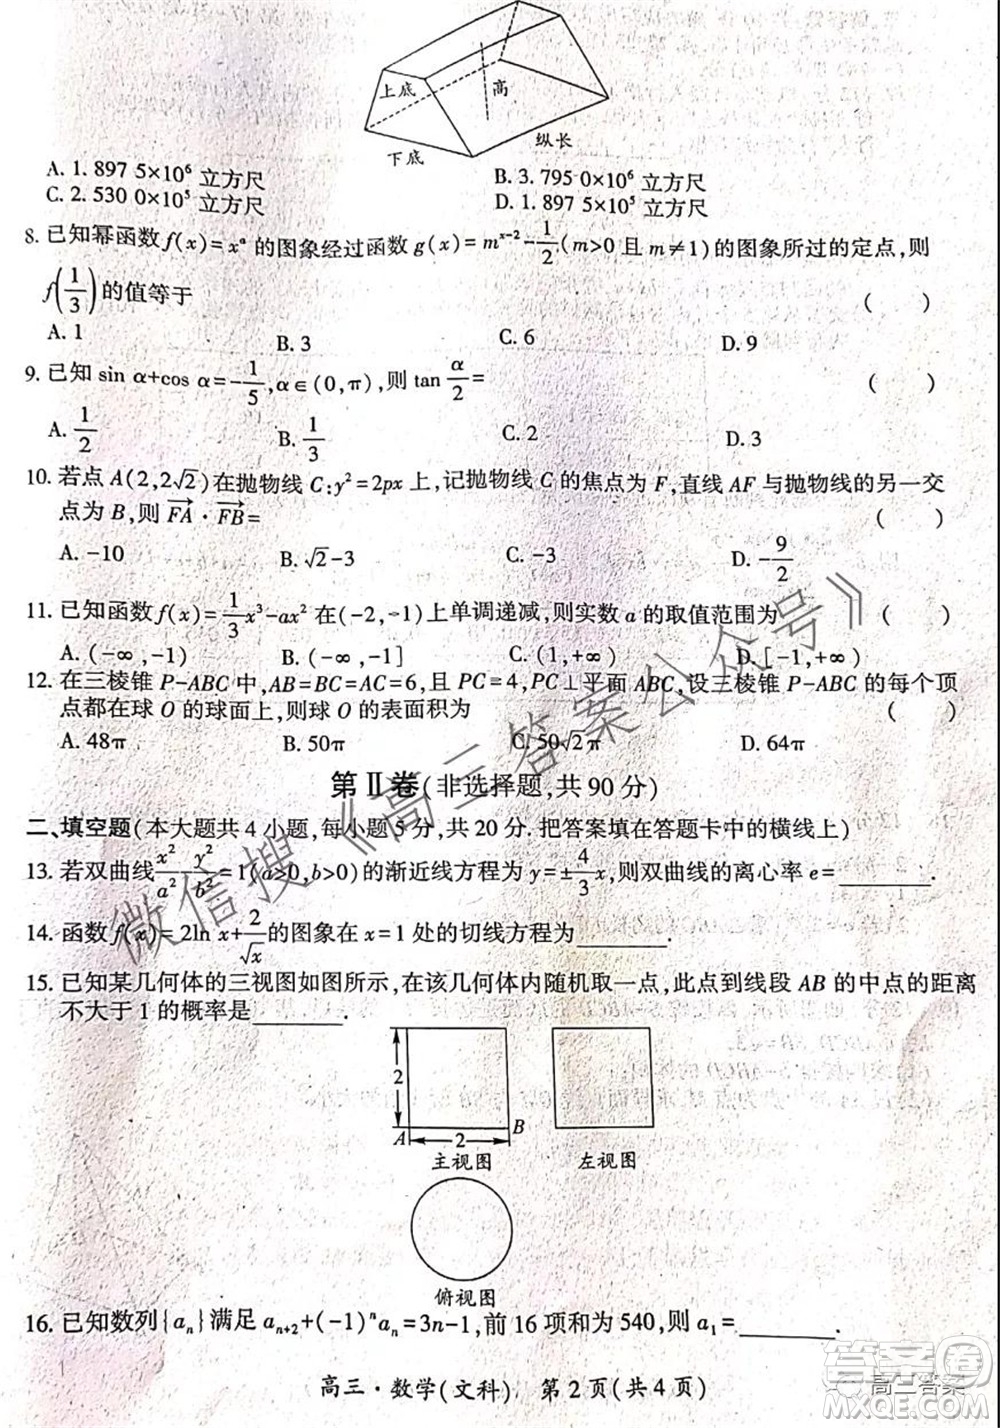 上底
高
纵长
下底
A. 1. 897 5×10⁶ 立方尺
B. 3. 795 0×10⁶ 立方尺
C. 2. 530 0×10⁵ 立方尺
D. 1. 897 5×10⁵ 立方尺
8. 已知幂函数 f(x)=xᵅ 的图象经过函数 g(x)=mˣ⁻²-1/2(m>0 且 m≠1)的图象所过的定点,则
f(1/3)的值等于 ( )
A. 1 B. 3 C. 6 D. 9
9. 已知 sin α+cos α=-1/5,α∈(0,π),则 tan α/2= ( )
A. 1/2 B. 1/3 C. 2 D. 3
10. 若点 A(2,2√2)在抛物线 C:y²=2px 上,记抛物线 C 的焦点为 F,直线 AF 与抛物线的另一交
点为 B,则 FA→·FB→= ( )
A. -10 B. √2-3 C. -3 D. -9/2
11. 已知函数 f(x)=1/3x³-ax² 在(-2,-1)上单调递减,则实数 a 的取值范围为 ( )
A. (-∞,-1) B. (-∞,-1] C. (1,+∞) D. [-1,+∞)
12. 在三棱锥 P-ABC 中,AB=BC=AC=6,且 PC=4,PC⊥平面 ABC,设三棱锥 P-ABC 的每个顶
点都在球 O 的球面上,则球 O 的表面积为 ( )
A. 48π B. 50π C. 50√2π D. 64π
第Ⅱ卷(非选择题,共90分)
二、填空题(本大题共 4 小题,每小题 5 分,共 20 分. 把答案填在答题卡中的横线上)
13. 若双曲线x²/a²-y²/b²=1(a>0,b>0)的渐近线方程为 y=±4/3x,则双曲线的离心率 e=______.
14. 函数 f(x)=2ln x+2/√x的图象在 x=1 处的切线方程为______.
15. 已知某几何体的三视图如图所示,在该几何体内随机取一点,此点到线段 AB 的中点的距离
不大于 1 的概率是______.
2
A 2 B
主视图 左视图
俯视图
16. 已知数列{aₙ}满足 aₙ₊₂+(-1)ⁿaₙ=3n-1,前 16 项和为 540,则 a₁=______.
高三·数学(文科) 第2页(共4页)
微信搜《高三答案公众号》
答案圈
高三答案
MXQE.COM